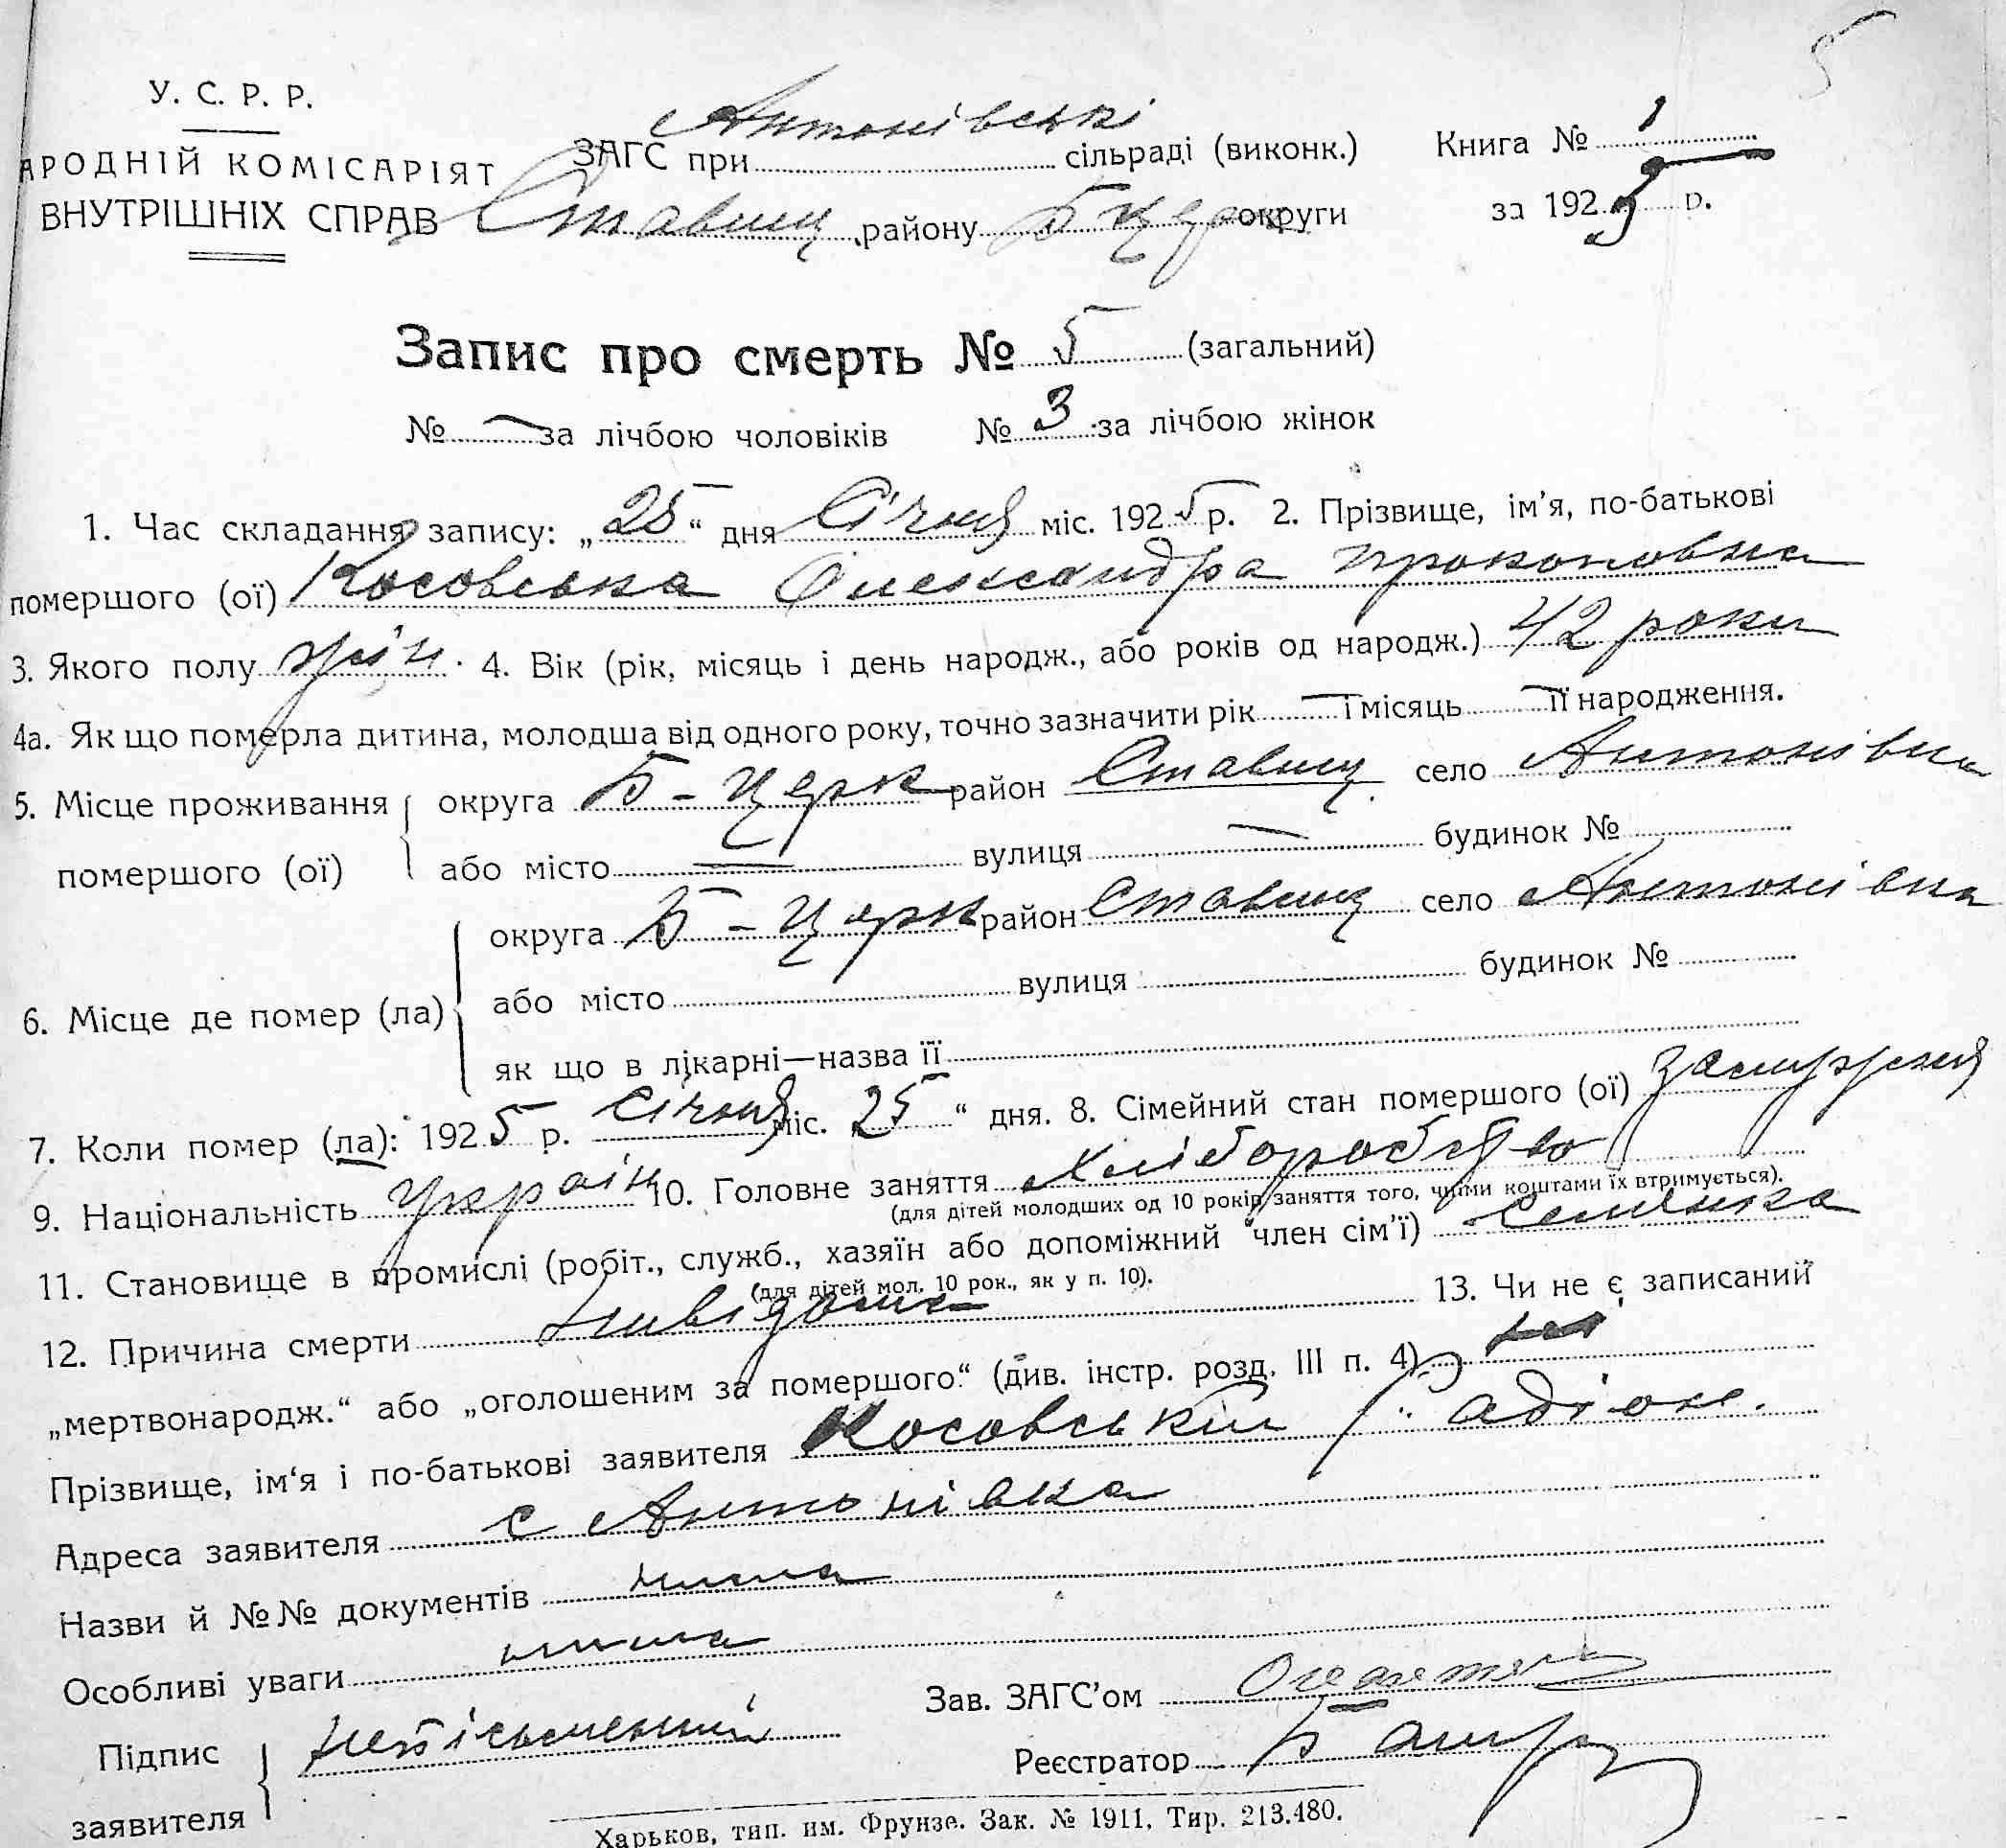 5
У. С. Р. Р.
АРОДНІЙ КОМІСАРІЯТ
ВНУТРІШНІХ СПРАВ
ЗАГС при Антонівські сільраді (виконк.)
Книга № 1
Ставищ району Б Церк округи
за 1925 р.
Запис про смерть № 5 (загальний)
№ — за лічбою чоловіків № 3 за лічбою жінок
1. Час складання запису: „25“ дня Січня міс. 1925 р. 2. Прізвище, ім'я, по-батькові
помершого (ої) Косовська Олександра Прокоповна
3. Якого полу жін. 4. Вік (рік, місяць і день народж., або років од народж.) 42 роки
4а. Як що померла дитина, молодша від одного року, точно зазначити рік — і місяць — її народження.
5. Місце проживання помершого (ої)
округа Б-Церк район Ставищ село Антонівка
або місто — вулиця — будинок №
6. Місце де помер (ла)
округа Б-Церк район Ставищ село Антонівка
або місто вулиця будинок №
як що в лікарні—назва її
7. Коли помер (ла): 1925 р. Січня міс. 25 “ дня. 8. Сімейний стан помершого (ої) замужня
9. Національність Україн 10. Головне заняття Хліборобство
(для дітей молодших од 10 років заняття того, чиїми коштами їх втримується).
11. Становище в промислі (робіт., служб., хазяїн або допоміжний член сім'ї) Селянка
(для дітей мол. 10 рок., як у п. 10).
12. Причина смерти невідома 13. Чи не є записаний
„мертвонародж.“ або „оголошеним за помершого“ (див. інстр. розд. III п. 4) ні
Прізвище, ім'я і по-батькові заявителя Косовський Радіон.
Адреса заявителя с Антонівка
Назви й №№ документів нима
Особливі уваги нима
Підпис заявителя непісьменний
Зав. ЗАГС'ом
Реєстратор
Харьков, тип. им. Фрунзе. Зак. № 1911. Тир. 213.480.